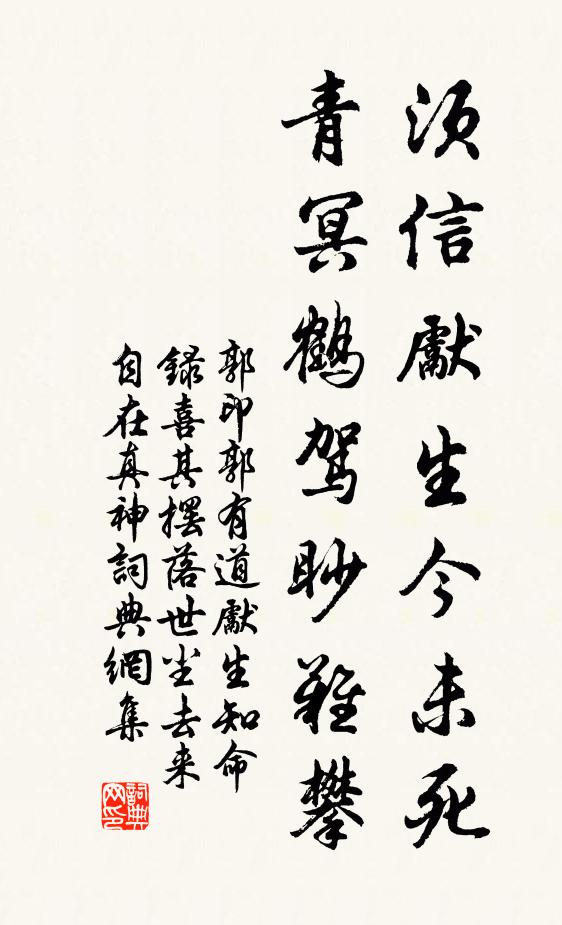 须信獻生今未死
青冥鶴駕眇難攀
郭印郭有道獻生知命
録喜其擺落世尘去来
自在真神詞典網集
詞典
网印